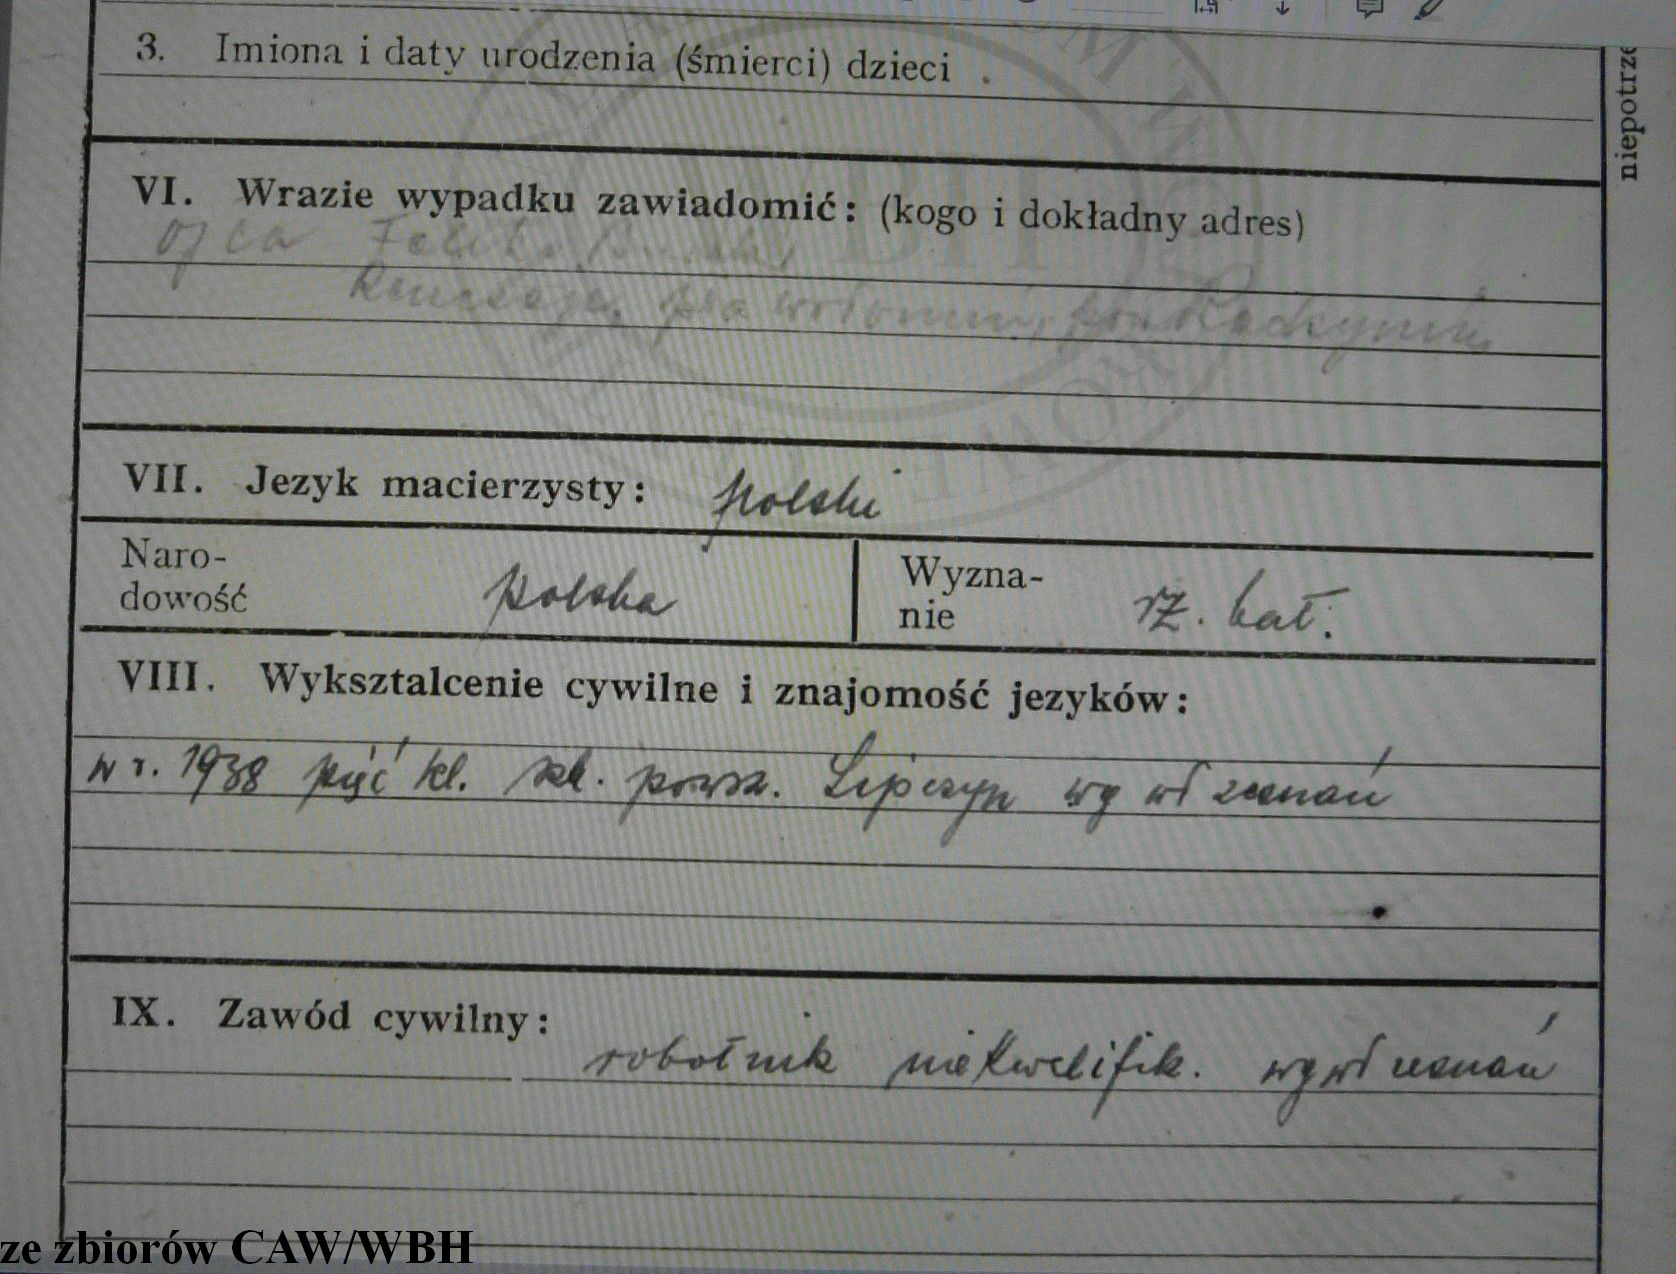 3. Imiona i daty urodzenia (śmierci) dzieci
niepotrze
VI. Wrazie wypadku zawiadomić: (kogo i dokładny adres)
ojca
VII. Jezyk macierzysty: polski
Naro-
dowość polska
Wyzna-
nie rz. kat.
VIII. Wyksztalcenie cywilne i znajomość jezyków:
w r. 1938 pięć kl. szk. powsz. wg wł zeznań
IX. Zawód cywilny:
robotnik niekwalifik. wg wł zeznań
ze zbiorów CAW/WBH